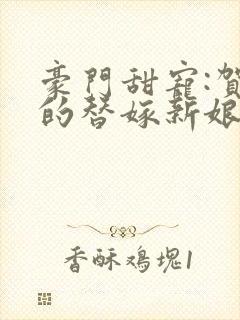 豪門甜寵:賀
的替嫁新娘
香酥鸡塊1